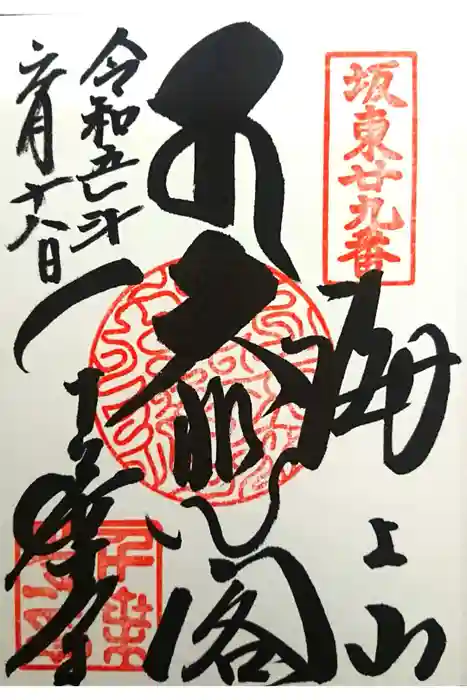 坂東廿九番
海上山
大悲閣
令和五年
六月十八日
千葉寺